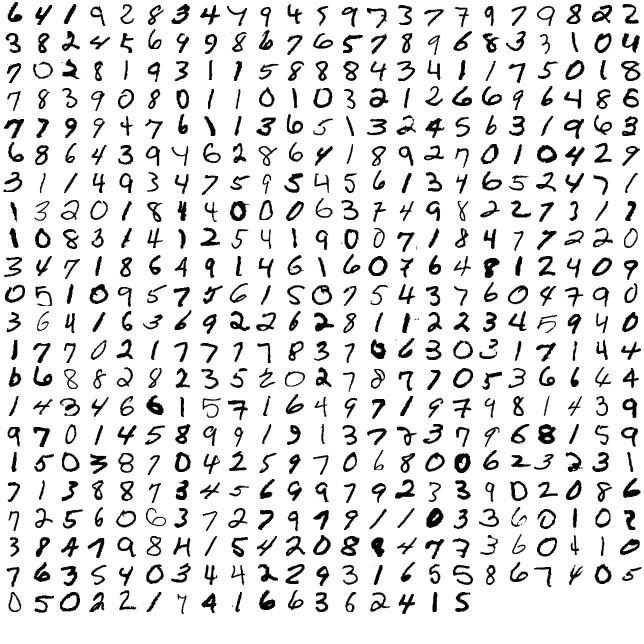 6 4 1 9 2 8 3 4 4 9 4 5 9 7 3 7 7 9 7 9 8 2 2
3 8 2 4 5 6 9 9 8 6 7 6 5 7 8 9 6 8 3 3 1 0 4
7 0 2 8 1 9 3 1 1 5 8 8 8 4 3 4 1 1 7 5 0 1 8
7 8 3 9 0 8 0 1 1 0 1 0 3 2 1 2 6 6 9 6 4 8 6
7 7 9 9 4 7 6 1 1 3 6 5 1 3 2 4 5 6 3 1 9 6 3
6 8 6 4 3 9 4 6 2 8 6 4 1 8 9 2 7 0 1 0 4 2 9
3 1 1 4 9 3 4 7 5 9 5 4 5 6 1 3 4 6 5 2 4 7 1
1 3 2 0 1 8 4 4 0 0 0 6 3 7 4 9 8 2 2 7 3 1 7
1 0 8 3 1 4 1 2 5 4 1 9 0 0 7 1 8 4 7 7 2 2 0
3 4 7 1 8 6 4 9 1 4 6 1 6 0 7 6 4 8 1 2 4 0 9
0 5 1 0 9 5 7 5 6 1 5 0 7 5 4 3 7 6 0 4 7 9 0
3 6 4 1 6 3 6 9 2 2 6 2 8 1 1 2 2 3 4 5 9 4 0
1 7 7 0 2 1 7 7 7 7 8 3 7 0 6 3 0 3 1 7 1 4 4
6 6 8 8 2 8 2 3 5 2 0 2 7 8 7 7 0 5 3 6 6 4 4
1 4 3 4 6 6 1 5 7 1 6 4 9 7 1 9 7 9 8 1 4 3 9
9 7 0 1 4 5 8 9 9 1 9 1 3 7 7 3 7 9 6 8 1 5 9
1 5 0 3 8 7 0 4 2 5 9 7 0 6 8 0 0 6 2 3 2 3 1
7 1 3 8 8 7 3 4 5 6 9 9 7 9 2 3 3 9 0 2 0 8 6
7 2 5 6 0 6 3 7 2 7 9 7 9 1 1 0 3 3 6 0 1 0 2
3 8 4 7 9 8 4 1 5 4 2 0 8 8 4 7 7 3 6 0 4 1 0
7 6 3 5 4 0 3 4 4 2 2 9 3 1 6 5 5 8 6 7 4 0 5
0 5 0 2 2 1 7 4 1 6 6 3 6 2 4 1 5